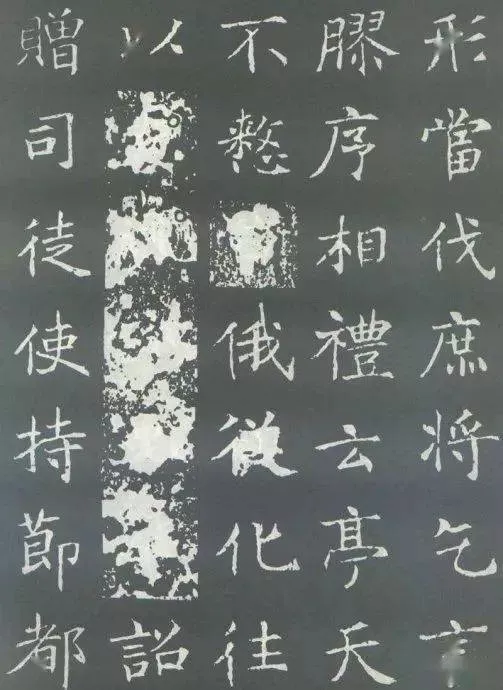 形當伐庶将乞言
膠序相禮云亭天
不憗俄從化往
以詔
贈司徒使持節都